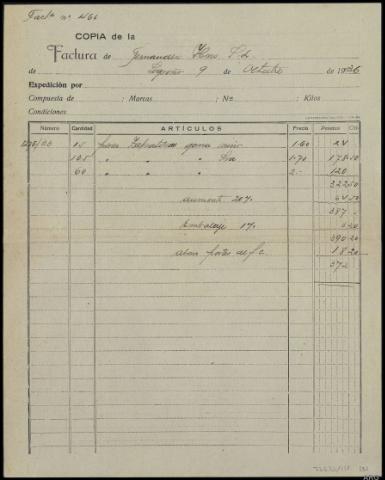 Factª nº 466
COPIA de la
Factura de Fernandez Hno. S.L.
de Logroño 9 de Octubre de 1936
Expedición por
Compuesta de ; Marcas ; Nos ; Kilos
Condiciones
Número Cantidad ARTÍCULOS Precio Pesetas Cts.
15 pares Zapatillas goma niño 1.60 24
105 " " " 1.70 178.50
60 " " " 2.- 120
322.50
aumento 20% 64.50
387
Embalaje 1%
390.20
portes de f.c. 18.20
372